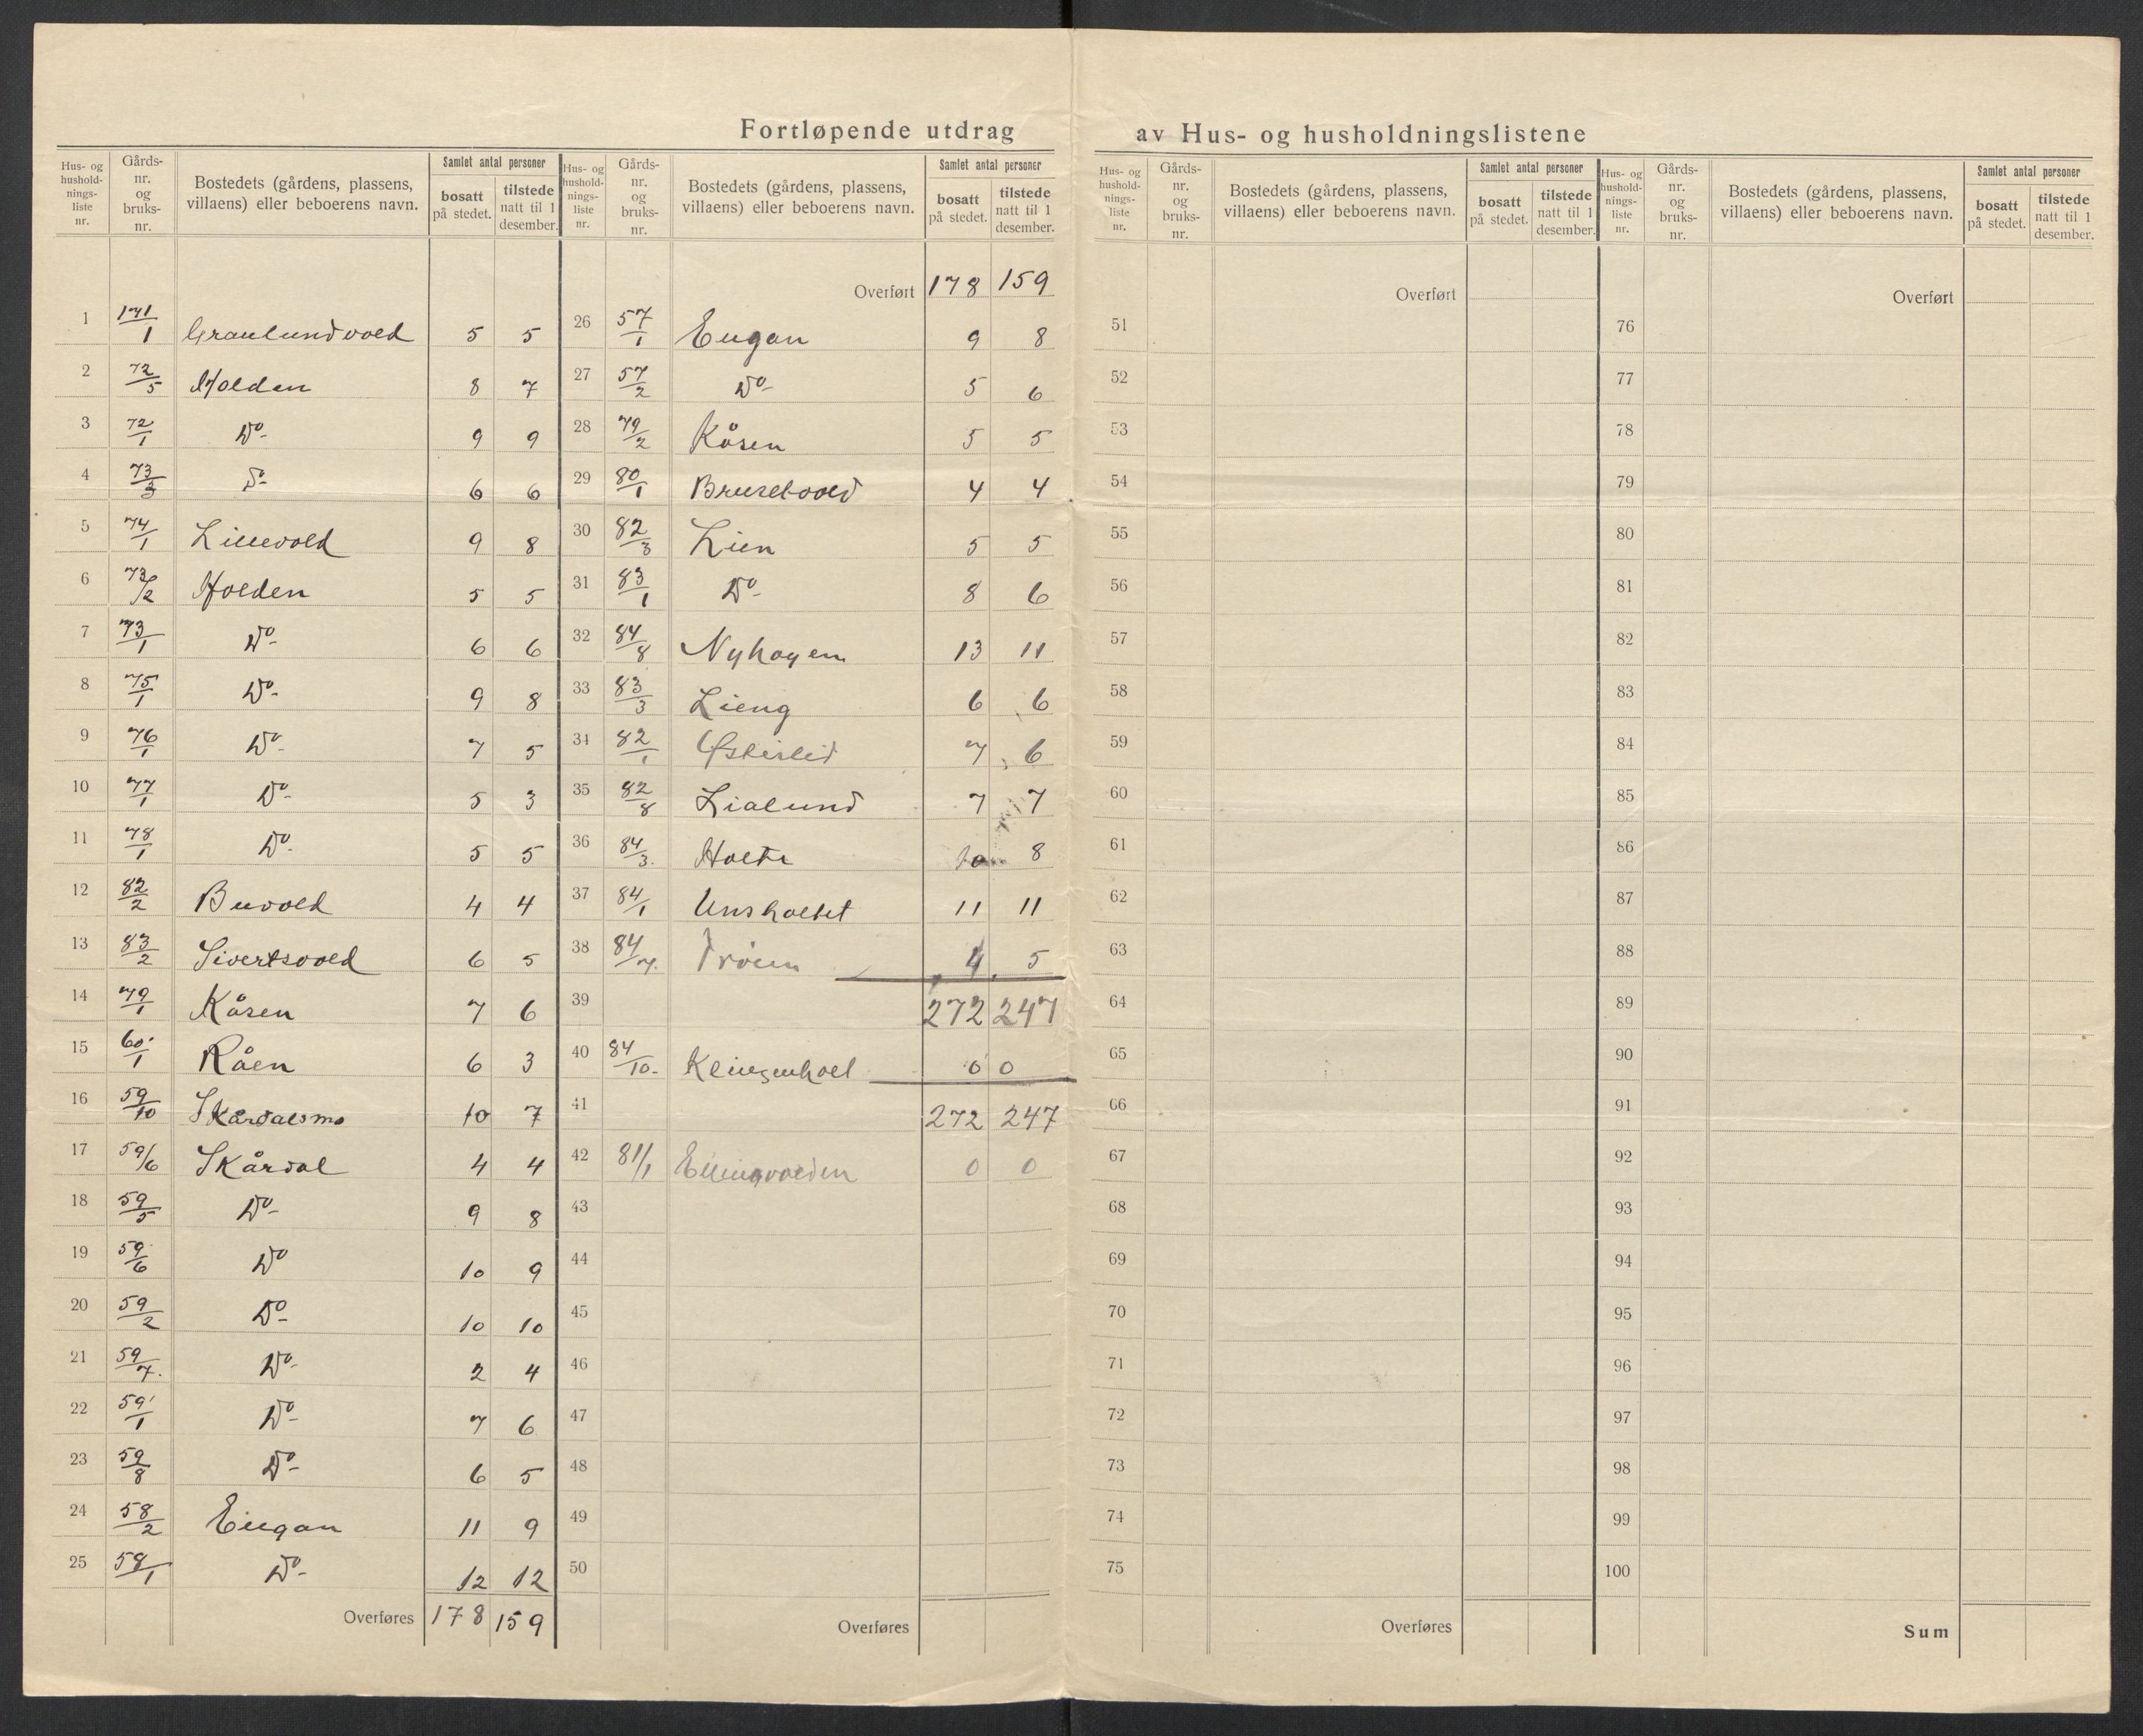 Fortløpende utdrag av Hus- og husholdningslistene
Hus- og husholdningsliste nr. | Gårdsnr. og bruksnr. | Bostedets (gårdens, plassens, villaens) eller beboerens navn. | Samlet antal personer bosatt på stedet. | tilstede natt til 1 desember.
1 171/1 5 5
2 72/5 Holden 8 7
3 72/1 Do- 9 9
4 73/3 Do- 6 6
5 74/1 Lillevold 9 8
6 73/2 Holden 5 5
7 73/1 Do- 6 6
8 75/1 Do- 9 8
9 76/1 Do- 7 5
10 77/1 Do- 5 3
11 78/1 Do- 5 5
12 82/2 Buvold 4 4
13 83/2 Sivertsvold 6 5
14 79/1 Kåsen 7 6
15 60/1 Råen 6 3
16 59/10 Skårdalsmo 10 7
17 59/6 Skårdal 4 4
18 59/5 Do- 9 8
19 59/6 Do 10 9
20 59/2 Do- 10 10
21 59/7. Do- 2 4
22 59/1 Do- 7 6
23 59/8 Do- 6 5
24 58/2 Eugan 11 9
25 58/1 Do- 12 12
Overføres 178 159
Hus- og husholdningsliste nr. | Gårdsnr. og bruksnr. | Bostedets (gårdens, plassens, villaens) eller beboerens navn. | Samlet antal personer bosatt på stedet. | tilstede natt til 1 desember.
Overført 178 159
26 57/1 Eugan 9 8
27 57/2 Do- 5 6
28 79/2 Kåsen 5 5
29 80/1 4 4
30 82/3 Lien 5 5
31 83/1 Do- 8 6
32 84/8 Nyhagen 13 11
33 83/3 Lieng 6 6
34 82/1 Østerlid 7 6
35 82/8 Lialund 7 7
36 84/3. Holte 10 8
37 84/1 Unsholtet 11 11
38 84/7. Trøen 4 5
39 272 247
40 84/10. 0 0
41 272 247
42 81/1 Ellingvolden 0 0
43
44
45
46
47
48
49
50
Overføres
Hus- og husholdningsliste nr. | Gårdsnr. og bruksnr. | Bostedets (gårdens, plassens, villaens) eller beboerens navn. | Samlet antal personer bosatt på stedet. | tilstede natt til 1 desember.
Overført
51
52
53
54
55
56
57
58
59
60
61
62
63
64
65
66
67
68
69
70
71
72
73
74
75
Overføres
Hus- og husholdningsliste nr. | Gårdsnr. og bruksnr. | Bostedets (gårdens, plassens, villaens) eller beboerens navn. | Samlet antal personer bosatt på stedet. | tilstede natt til 1 desember.
Overført
76
77
78
79
80
81
82
83
84
85
86
87
88
89
90
91
92
93
94
95
96
97
98
99
100
Sum